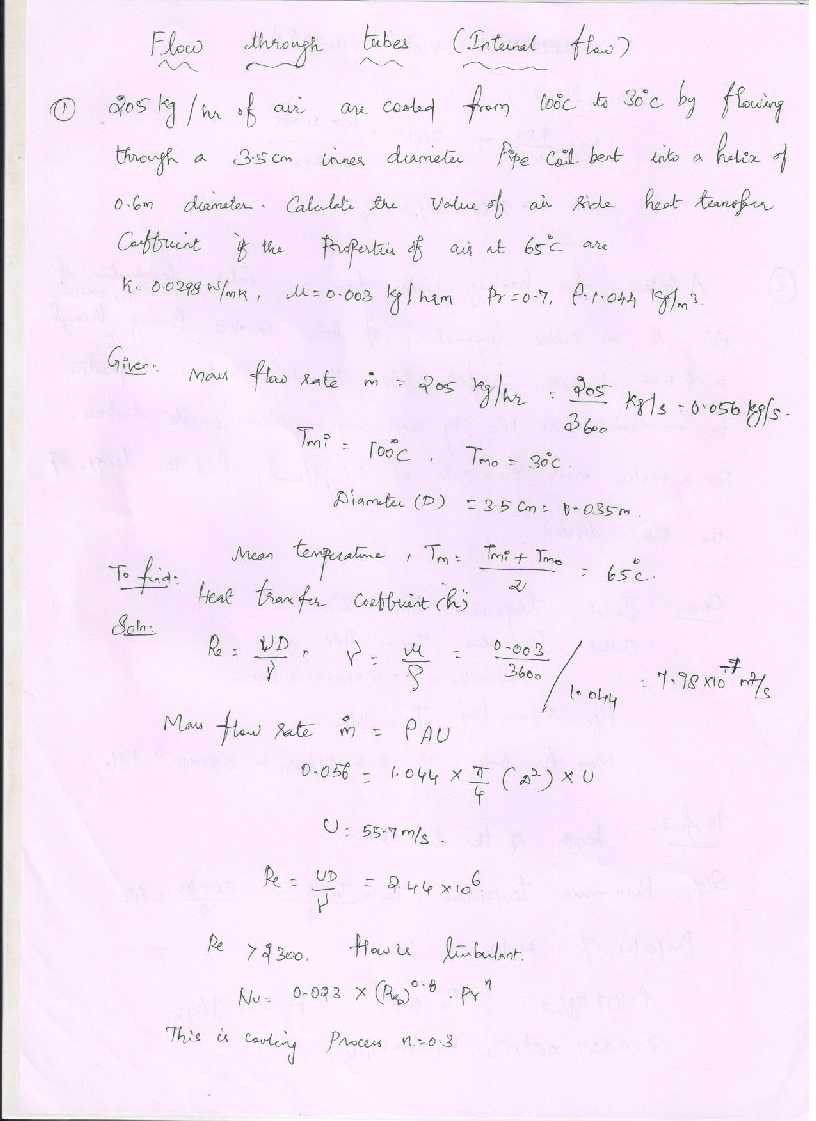 Flow through tubes (Internal flow)
① 205 kg/hr of air are cooled from 100°C to 30°C by flowing
through a 3.5 cm inner diameter Pipe Coil bent into a helix of
0.6m diameter. Calculate the Value of air side heat transfer
Coefficient if the Properties of air at 65°C are
K = 0.0298 W/mK, μ = 0.003 kg/hr m Pr = 0.7, ρ = 1.044 kg/m³.
Given: Mass flow rate ṁ = 205 kg/hr = 205/3600 kg/s = 0.056 kg/s.
Tmi = 100°C, Tmo = 30°C.
Diameter (D) = 3.5 cm = 0.035m.
Mean temperature, Tm = (Tmi + Tmo)/2 = 65°C.
To find: Heat transfer Coefficient (h)
Soln:
Re = UD/ν, ν = μ/ρ = 0.003/3600 / 1.044 = 7.98 x 10⁻⁷ m²/s
Mass flow rate ṁ = ρAU
0.056 = 1.044 x π/4 (D²) x U
U = 55.7 m/s.
Re = UD/ν = 2.44 x 10⁶
Re > 2300. Flow is turbulent.
Nu = 0.023 x (Re)⁰·⁸ . Prⁿ
This is cooling Process n = 0.3